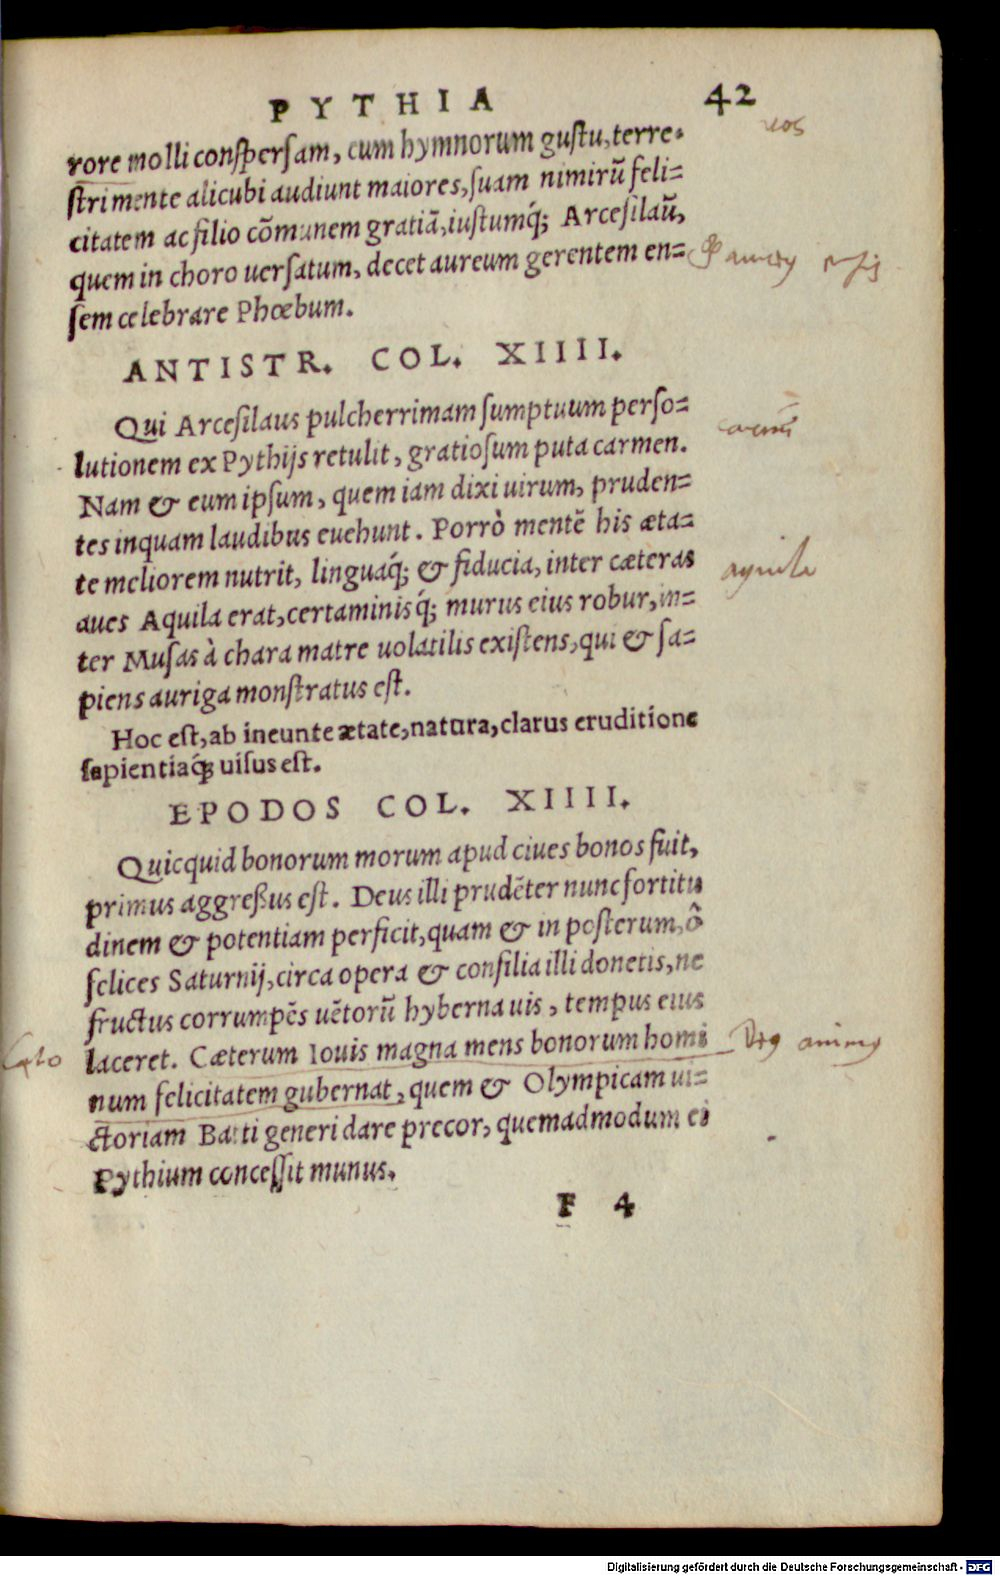 PYTHIA 42
rore molli conspersam, cum hymnorum gustu, terre-
stri mente alicubi audiunt maiores, suam nimirū feli-
citatem ac filio cōmunem gratiā, iustumq́; Arcesilaū,
quem in choro uersatum, decet aureum gerentem en-
sem celebrare Phœbum.
ANTISTR. COL. XIIII.
Qui Arcesilaus pulcherrimam sumptuum perso-
lutionem ex Pythijs retulit, gratiosum puta carmen.
Nam & eum ipsum, quem iam dixi uirum, pruden-
tes inquam laudibus euehunt. Porrò mentē his æta-
te meliorem nutrit, linguaq́; & fiducia, inter cæteras
aues Aquila erat, certaminisq́; murus eius robur, in-
ter Musas à chara matre uolatilis existens, qui & sa-
piens auriga monstratus est.
aquila
Hoc est, ab ineunte ætate, natura, clarus eruditione
sapientiaq́; uisus est.
EPODOS COL. XIIII.
Quicquid bonorum morum apud ciues bonos fuit,
primus aggreßus est. Deus illi prudēter nunc fortitu
dinem & potentiam perficit, quam & in posterum, ô
felices Saturnij, circa opera & consilia illi donetis, ne
fructus corrumpēs uētorū hyberna uis, tempus eius
laceret. Cæterum Iouis magna mens bonorum homi
num felicitatem gubernat, quem & Olympicam ui-
ctoriam Batti generi dare precor, quemadmodum ei
Pythium concessit munus.
F 4
Digitalisierung gefördert durch die Deutsche Forschungsgemeinschaft - DFG